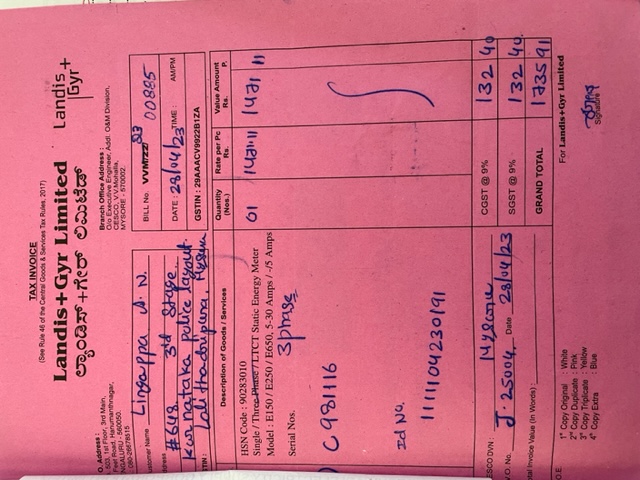 TAX INVOICE
(See Rule 46 of the Central Goods & Services Tax Rules, 2017)
Landis+Gyr Limited
ಲ್ಯಾಂಡಿಸ್+ಗೇರ್ ಲಿಮಿಟೆಡ್
Landis
Gyr+
O. Address :
503, 1st Floor, 3rd Main,
Feet Road, Hanumanthnagar,
NGALURU - 560050.
: 080-26678515
Branch Office Address :
O/o Executive Engineer, Addl. O&M Division,
CESCO, V.V.Mohalla,
MYSORE - 570002.
ustomer Name Lingappa A. N.
ddress #648 3rd Stage
Karnataka police layout
Lalithadripura Mysuru
TIN :
BILL No. VVM/22 23 00885
DATE : 28/04/23 TIME : AM/PM
GSTIN : 29AAACV9922B1ZA
Description of Goods / Services
Quantity (Nos.)
Rate per Pc Rs.
Value Amount Rs. P.
HSN Code : 90283010
Single / Three Phase / LTCT Static Energy Meter
Model : E150 / E250 / E650, 5-30 Amps / -/5 Amps
01 1471 11 1471 11
Serial Nos. 3 phase
C981116
Id No.
1111104230191
ESCO DVN : Mysore
V.O. No. J. 25004 Date 28/04/23
otal Invoice Value (In Words) :
CGST @ 9% 132 40
SGST @ 9% 132 40
GRAND TOTAL 1735 91
O.E.
1st Copy Original : White
2nd Copy Duplicate : Pink
3rd Copy Triplicate : Yellow
4th Copy Extra : Blue
For Landis+Gyr Limited
Signature